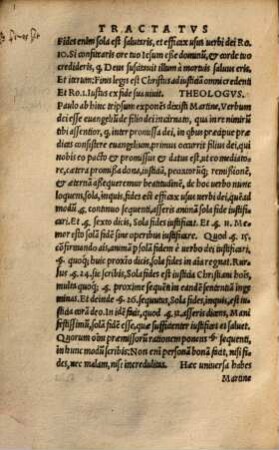 TRACTATVS
Fides enim sola est salutaris, et efficax usus uerbi dei Ro.
10. Si confitearis ore tuo Iesum esse dominũ, & corde tuo
credideris, q̃. Deus suscitauit illũ à mortuis saluus eris.
Et iterum: Finis legis est Christus ad iustitiã omni credenti
Et Ro. 1. Iustus ex fide sua uiuit. THEOLOGVS.
Paulo ab hinc tripsum exponẽs dixisti Martine, Verbum
dei esse euangeliũ de filio dei incarnato, qui in re nimirũ
tibi assentior, q̃ inter promissa dei, in qbus præcipue prædicas
consistere euangelium, primus occurrit filius dei, qui
nobis eo pacto & promissus & datus est, ut eo mediatore,
cætera promissa dona, iustitiã, peccatorũq; remissionẽ,
& æternã assequeremur beatitudinẽ, de hoc uerbo nunc
loquens, sola, inquis, fides est efficax usus uerbi dei, quẽad
modũ 4. continuo sequenti, asseris animã sola fide iustificari.
Et 4. sexto dicis, Sola fides iustificat. Et 4. 11. Memor
esto solã fidẽ sine operibus iustificare. Quod 4. 15.
cõfirmando ais, animã p̃ solã fidem è uerbo dei iustificari,
quod 4. huic proxio solã fidei dicis, in ala dari regnat. Rursus
4. 24. sic scribis, Sola fides est iustitia Christiani hois,
multis quoq; 4. proxime sequẽti in eandẽ sententiã ingeminas.
Et deinde 4. 26. sequutus, Sola fides, inquis, est iustitia
uera Deo. In idẽ fluit, quod 4. 31. asseris dicens, Manifestissimũ,
solã fidẽ esse, quæ sufficienter iustificet et saluet.
Quorum oim præmissorũ rationem ponens 4. sequenti,
in hunc modũ scribis: Non eni personã bonã facit, nisi fides,
nec malam, nisi incredulitas. Hæc uniuersa habes
Martine